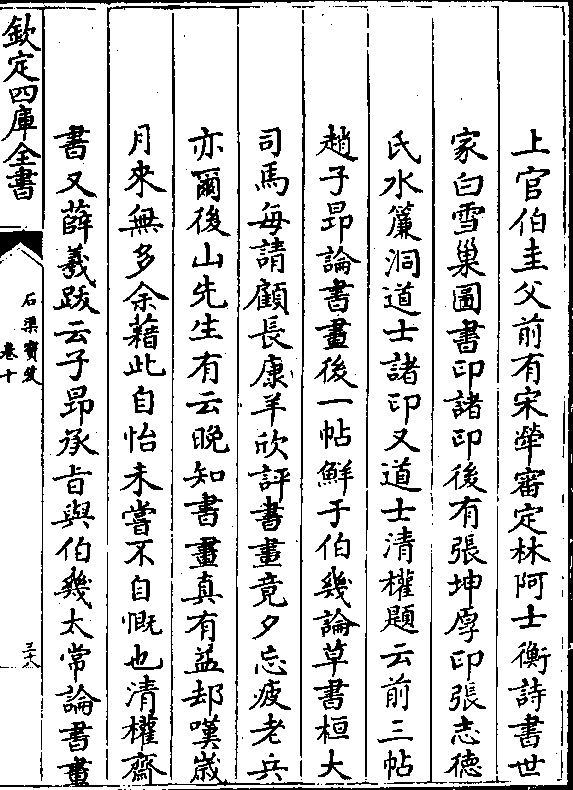 上官伯圭父前有宋犖審定林阿士衡詩書世
家白雪巢圖書印諸印後有張坤厚印張志德
氏水簾洞道士諸印又道士清權題云前三帖
趙子昻論書畫後一帖鮮于伯幾論草書桓大
司馬每請顧長康羊欣評書畫竟夕忘疲老兵
亦爾後山先生有云晚知書畫真有益却嘆嵗
月來無多余藉此自怡未嘗不自慨也清權齋
書又薛羲跋云子昻承㫖與伯幾太常論書畫
欽定四庫全書
石渠寶笈
卷十
三十八